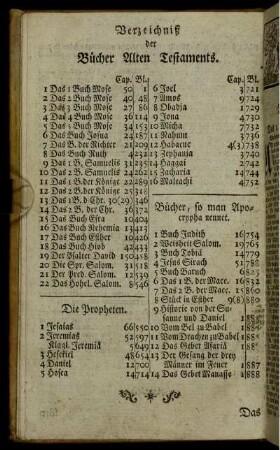 Verzeichniß
der
Bücher Alten Testaments.
Cap. Bl.
1 Das 1 Buch Mose 50 1
2 Das 2 Buch Mose 40 48
3 Das 3 Buch Mose 27 86
4 Das 4 Buch Mose 36 114
5 Das 5 Buch Mose 34 153
6 Das Buch Josua 24 187
7 Das B. der Richter 21 209
8 Das Buch Ruth 4 233
9 Das 1 B. Samuelis 31
10 Das 2 B. Samuelis 24
11 Das 1 B. der Könige 22
12 Das 2 B. der Könige 25
13 Das 1 B. d Chr. 30(29) 346
14 Das 2 B. der Chr. 36 373
15 Das Buch Esra 10
16 Das Buch Nehemia 13
17 Das Buch Esther 10
18 Das Buch Hiob 42 433
19 Der Psalter David 150 458
20 Die Spr. Salom. 31 518
21 Der Pred. Salom. 12 539
22 Das Hohel. Salom. 8 546
Die Propheten.
1 Jesaias 66 550
2 Jeremias 52 597
Klagl. Jeremiä 5 648
3 Hesekiel 48 654
4 Daniel 12 700
5 Hosea 14 714
Cap. Bl.
6 Joel 3 721
7 Amos 9 724
8 Obadja 1 729
9 Jona 4 730
10 Micha 7 732
11 Nahum 3 736
12 Habacuc 4(3) 738
13 Zephanja 3 740
14 Haggai 2 742
15 Zacharia 14 744
16 Maleachi 4 752
Bücher, so man Apo-
crypha nennet.
1 Buch Judith 16 754
2 Weisheit Salom. 19 765
3 Buch Tobiä 14 779
4 Jesus Sirach 51 788
5 Buch Baruch 6
6 Das 1 B. der Macc. 16 833
7 Das 2 B. der Macc. 15 860
8 Stück in Esther
9 Historie von der Su-
sanne und Daniel 1
10 Vom Bel zu Babel 1
11 Vom Drachen zu Babel
12 Das Gebet Asariä 1
13 Der Gesang der drey
Männer im Feuer 1 887
14 Das Gebet Manasse 1
Das